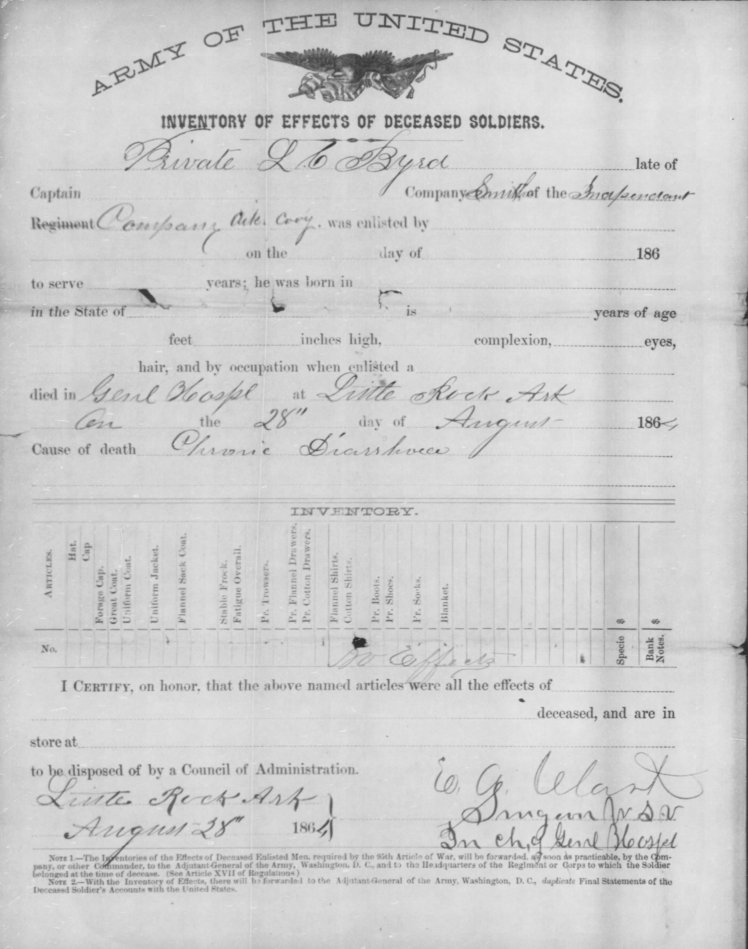 ARMY OF THE UNITED STATES.
INVENTORY OF EFFECTS OF DECEASED SOLDIERS.
Private L C Byrd late of
Captain Company Smith of the Independant
Regiment Company Ark. Cavy. was enlisted by
on the day of 186
to serve years; he was born in
in the State of is years of age
feet inches high, complexion, eyes,
hair, and by occupation when enlisted a
died in Genl Hospl at Little Rock Ark
On the 28" day of August 1864
Cause of death Chronic Diarrhoea
INVENTORY.
ARTICLES. Hat. Cap Forage Cap. Great Coat. Uniform Coat. Uniform Jacket. Flannel Sack Coat. Stable Frock. Fatigue Overall. Pr. Trowsers. Pr. Flannel Drawers. Pr. Cotton Drawers. Flannel Shirts. Cotton Shirts. Pr. Boots. Pr. Shoes. Pr. Socks. Blanket. Specie $ Bank Notes. $
No. No Effects
I CERTIFY, on honor, that the above named articles were all the effects of
deceased, and are in
store at
to be disposed of by a Council of Administration.
Little Rock Ark
August 28" 1864
Surgeon U.S.V
In ch. of Genl Hospl
NOTE 1.—The Inventories of the Effects of Deceased Enlisted Men, required by the 95th Article of War, will be forwarded, as soon as practicable, by the Com-
pany, or other Commander, to the Adjutant-General of the Army, Washington, D. C., and to the Headquarters of the Regiment or Corps to which the Soldier
belonged at the time of decease. (See Article XVII of Regulations)
NOTE 2.—With the Inventory of Effects, there will be forwarded to the Adjutant-General of the Army, Washington, D. C., duplicate Final Statements of the
Deceased Soldier's Accounts with the United States.